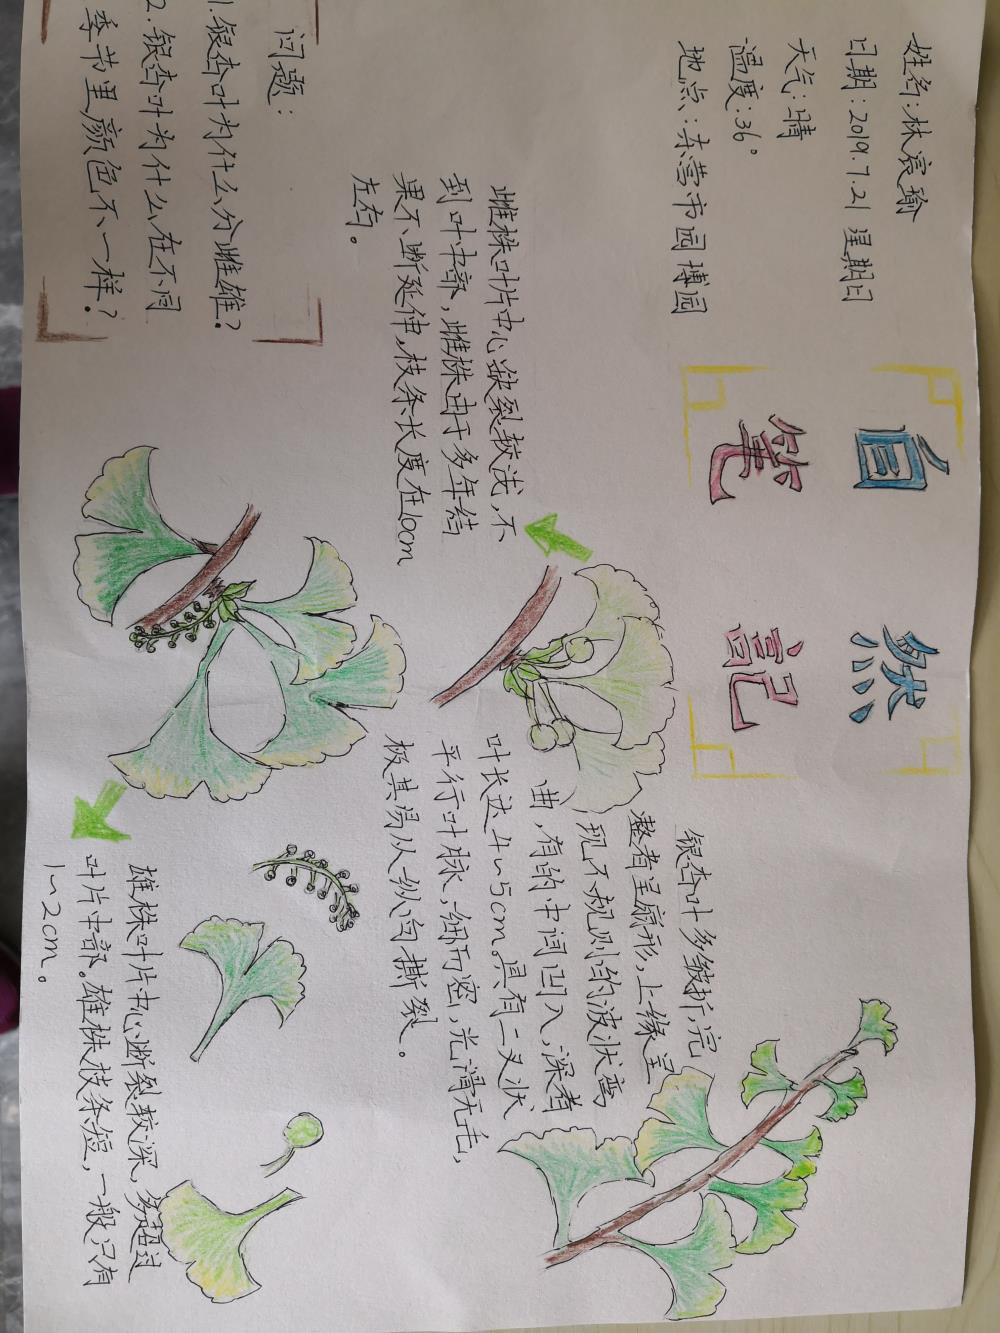 姓名:林宸瑜
日期:2019.7.21 星期日
天气:晴
温度:36°
地点:东营市园博园
自然
笔記
雌株叶片中心缺裂较浅,不
到叶中部,雌株由于多年结
果不断延伸,枝条长度在10cm
左右。
银杏叶多皱折,完
整者呈扇形,上缘呈
现不规则的波状弯
曲,有的中间凹入,深者
叶长达4~5cm。具有二叉状
平行叶脉,细而密,光滑无毛,
极其易从纵向撕裂。
问题:
1.银杏叶为什么分雌雄?
2.银杏叶为什么在不同
季节里颜色不一样?
雄株叶片中心断裂较深,多超过
叶片中部。雄株枝条短,一般只有
1~2cm。